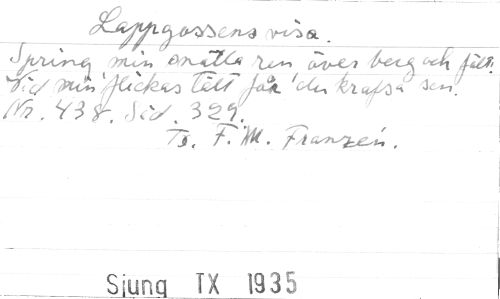 Lappgossens visa.
Spring min snälla ren över berg och fält.
Vid min flickas tält får du krafsa sen.
Nr. 438. Sid. 329.
To. F. M. Franzén.
Sjung TX 1935